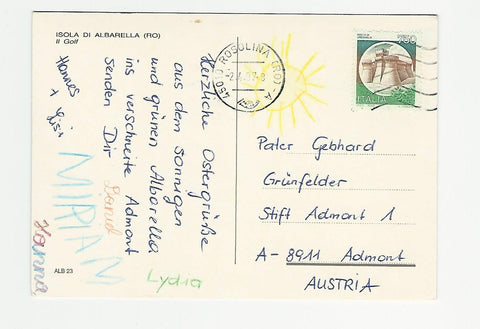 ISOLA DI ALBARELLA (RO)
Il Golf
45010 ROSOLINA (RO) A
750
ITALIA
Herzliche Ostergrüße
aus dem sonnigen
und grünen Albarella
ins verschneite Admont
senden Dir
Hannes
+ Lisi
David
MIRIAM
Hanna
Lydia
ALB 23
Pater Gebhard
Grünfelder
Stift Admont 1
A-8911 Admont
AUSTRIA